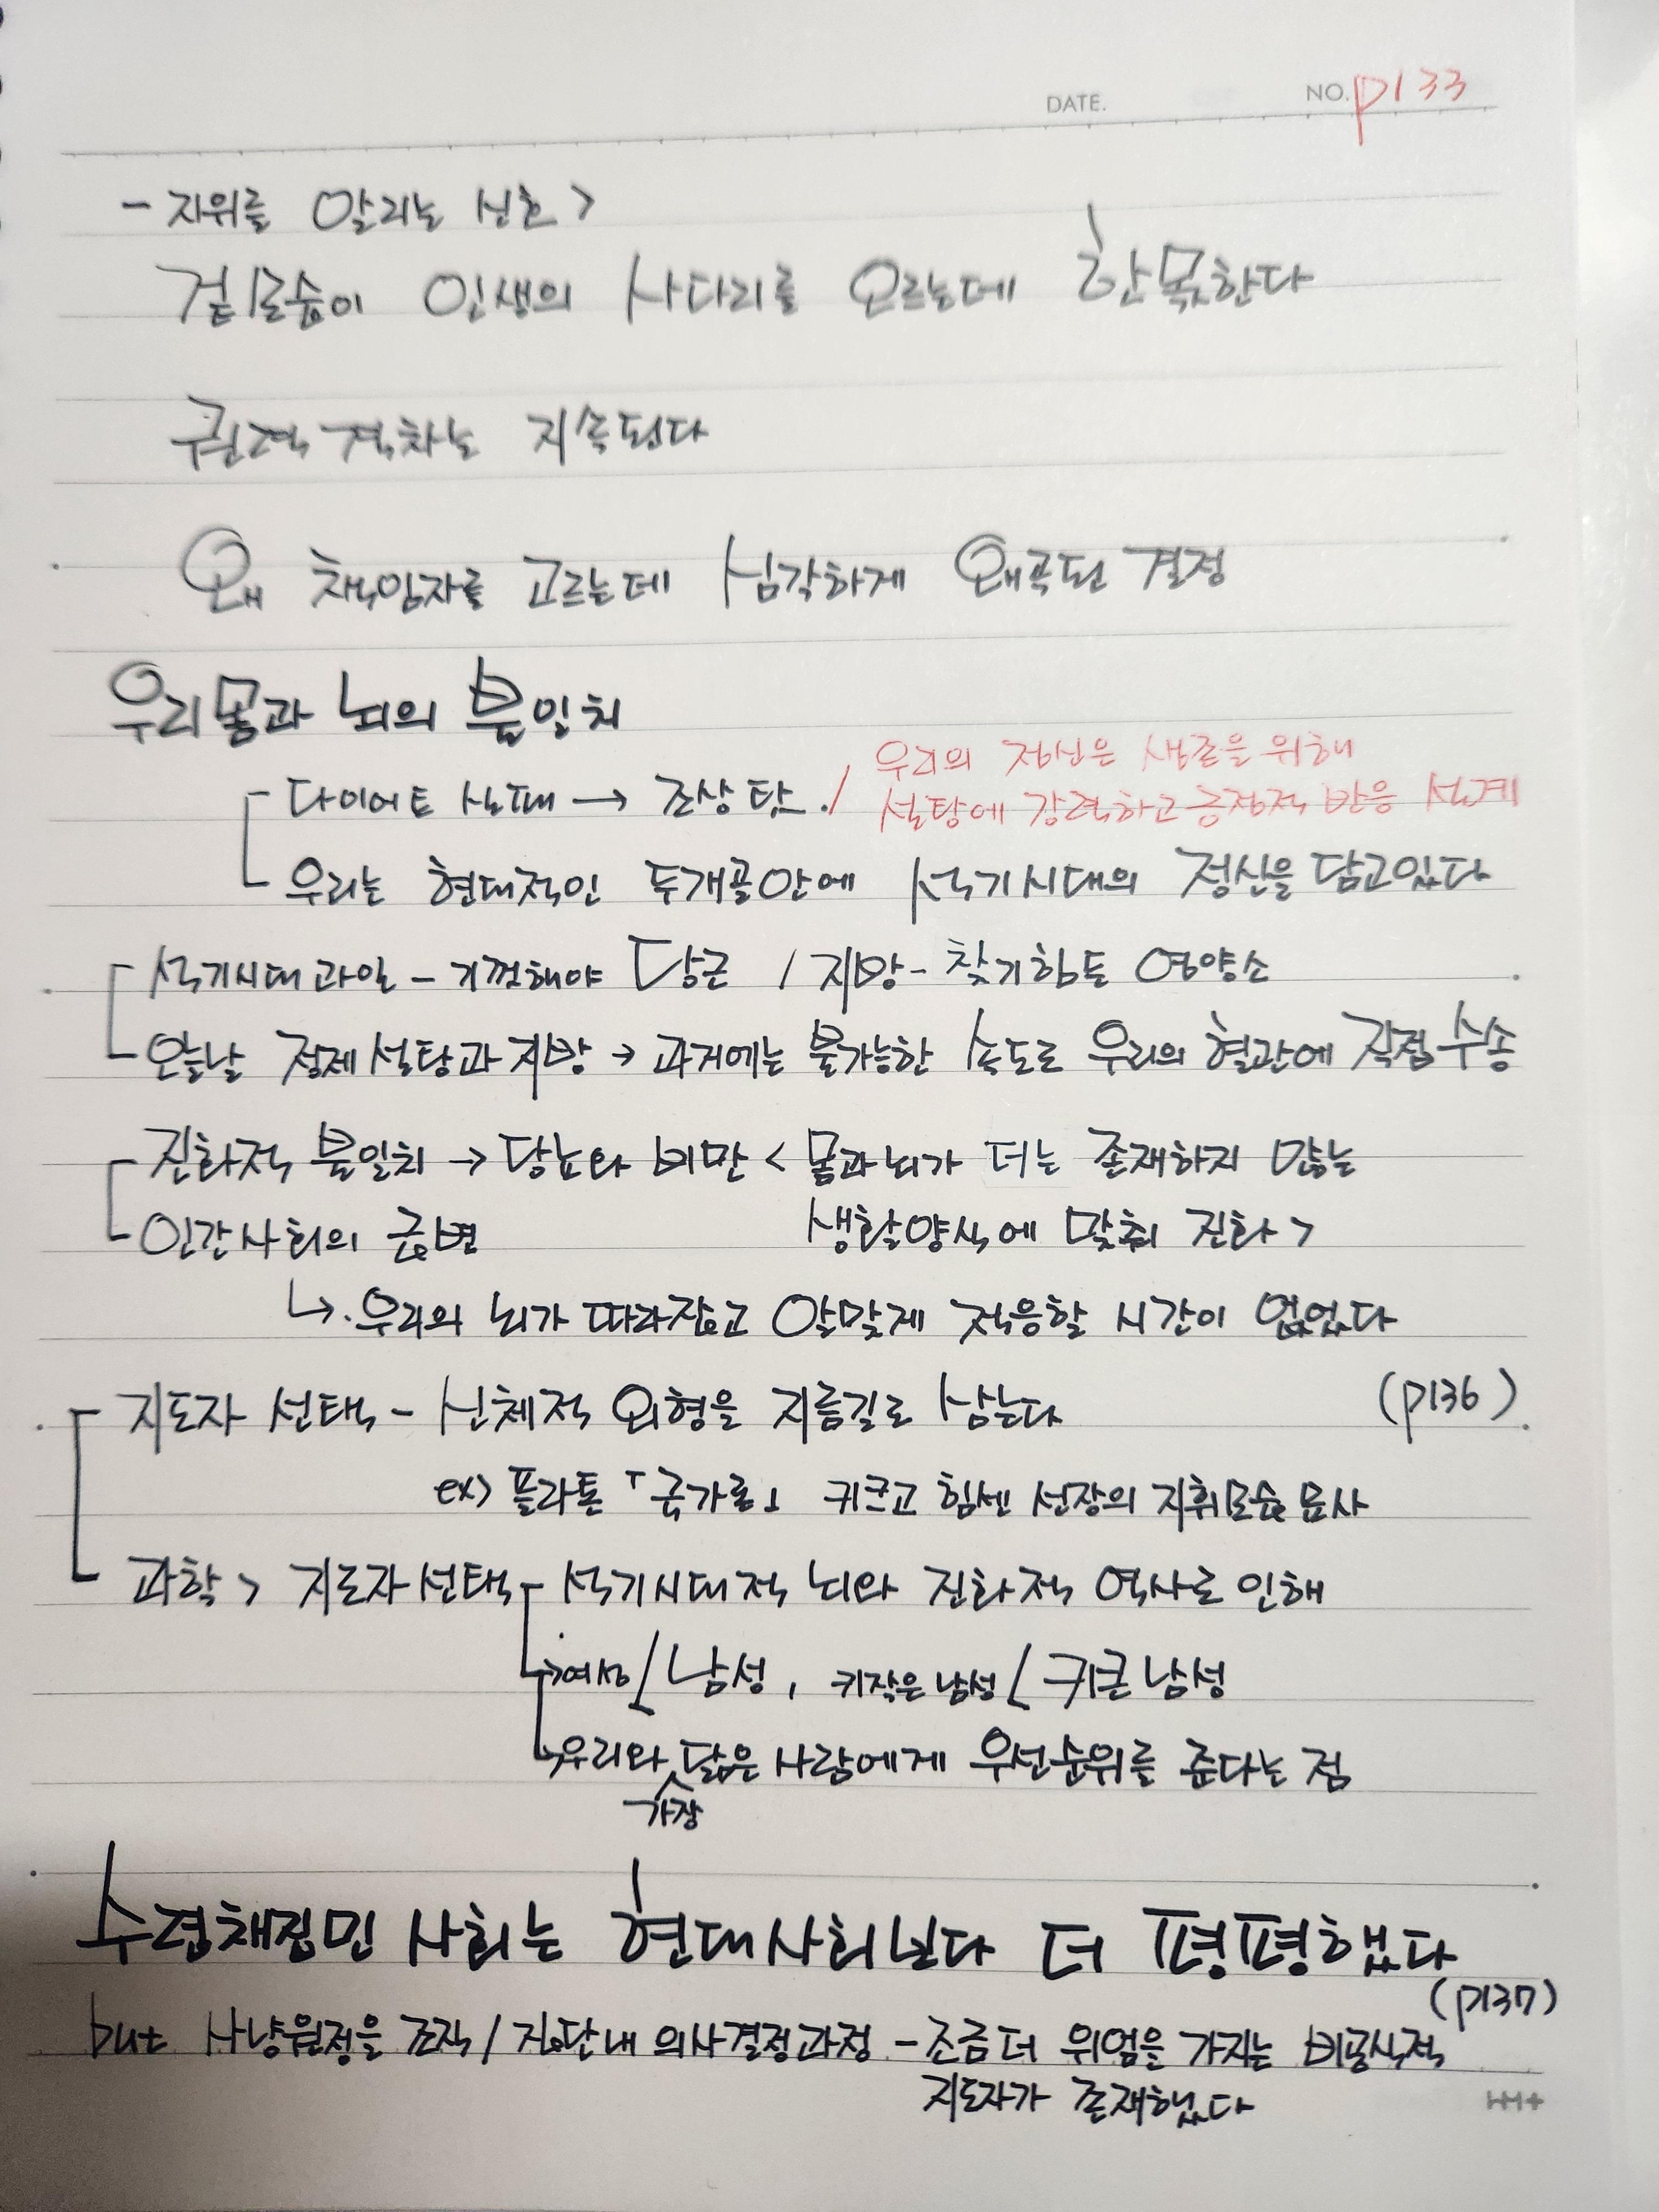 DATE. NO. p133
- 지위를 알리는 신호 >
겉모습이 인생의 사다리를 오르는데 한몫한다
권력격차는 지속된다
왜 책임자를 고르는데 심각하게 왜곡된 결정
우리몸과 뇌의 불일치
다이어트 실패 → 조상 탓. / 우리의 정신은 생존을 위해
설탕에 강력하고 긍정적 반응 설계
우리는 현대적인 두개골안에 석기시대의 정신을 담고있다
석기시대 과일 - 기껏해야 당근 / 지방 - 찾기힘든 영양소
오늘날 정제 설탕과 지방 → 과거에는 불가능한 속도로 우리의 혈관에 직접 수송
진화적 불일치 → 당뇨와 비만 < 몸과 뇌가 더는 존재하지 않는
인간사회의 급변 생활양식에 맞춰 진화 >
↳. 우리의 뇌가 따라잡고 알맞게 적응할 시간이 없었다
지도자 선택 - 신체적 외형을 지름길로 삼는다 (p136)
ex> 플라톤 「국가론」 키크고 힘센 선장의 지휘모습 묘사
과학 > 지도자 선택 - 석기시대적 뇌와 진화적 역사로 인해
→여성 < 남성, 키작은 남성 < 키큰 남성
↳우리와 가장 닮은 사람에게 우선순위를 준다는 점
수렵채집민 사회는 현대사회보다 더 평평했다
(p137)
but 사냥원정을 조직 / 집단내 의사결정과정 - 조금 더 위엄을 가지는 비공식적
지도자가 존재했다